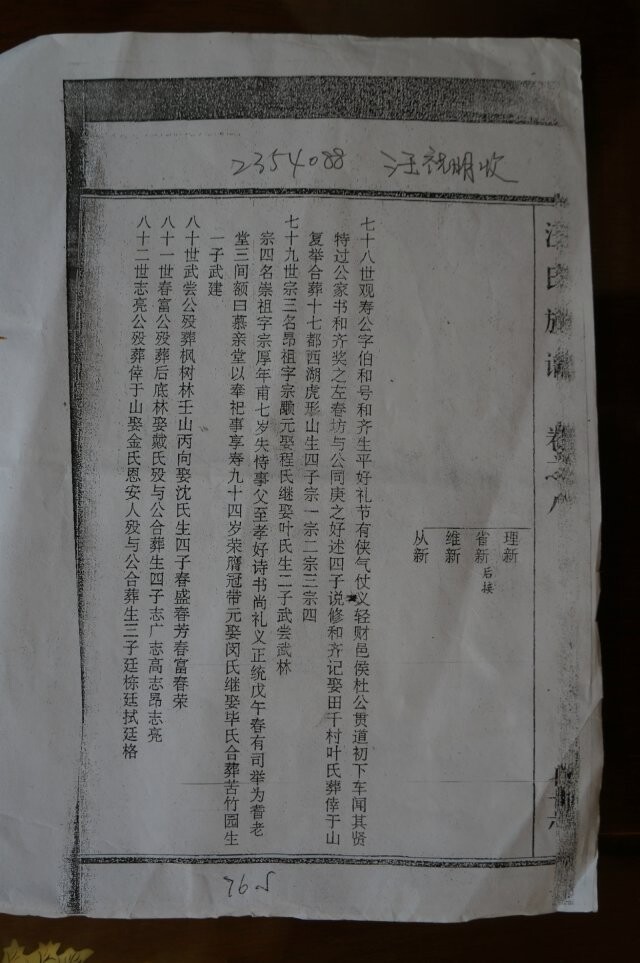 2354088 汪祝明收
汪氏族谱 卷之八
理新
省新 后接
维新
从新
七十八世观寿公字伯和号和齐生平好礼节有侠气仗义轻财邑侯杜公贯道初下车闻其贤
特过公家书和齐奖之左春坊与公同庚之好述四子说修和齐记娶田千村叶氏葬倖于山
复举合葬十七都西湖虎形山生四子宗一宗二宗三宗四
七十九世宗三名昂祖字宗颙元娶程氏继娶叶氏生二子武尝武林
宗四名崇祖字宗厚年甫七岁失恃事父至孝好诗书尚礼义正统戊午春有司举为耆老
堂三间额曰慕亲堂以奉祀事享寿九十四岁荣膺冠带元娶闵氏继娶毕氏合葬苦竹园生
一子武建
八十世武尝公殁葬枫树林壬山丙向娶沈氏生四子春盛春芳春富春荣
八十一世春富公殁葬后底林娶戴氏殁与公合葬生四子志广志高志昂志亮
八十二世志亮公殁葬倖于山娶金氏恩安人殁与公合葬生三子廷栋廷拭廷格